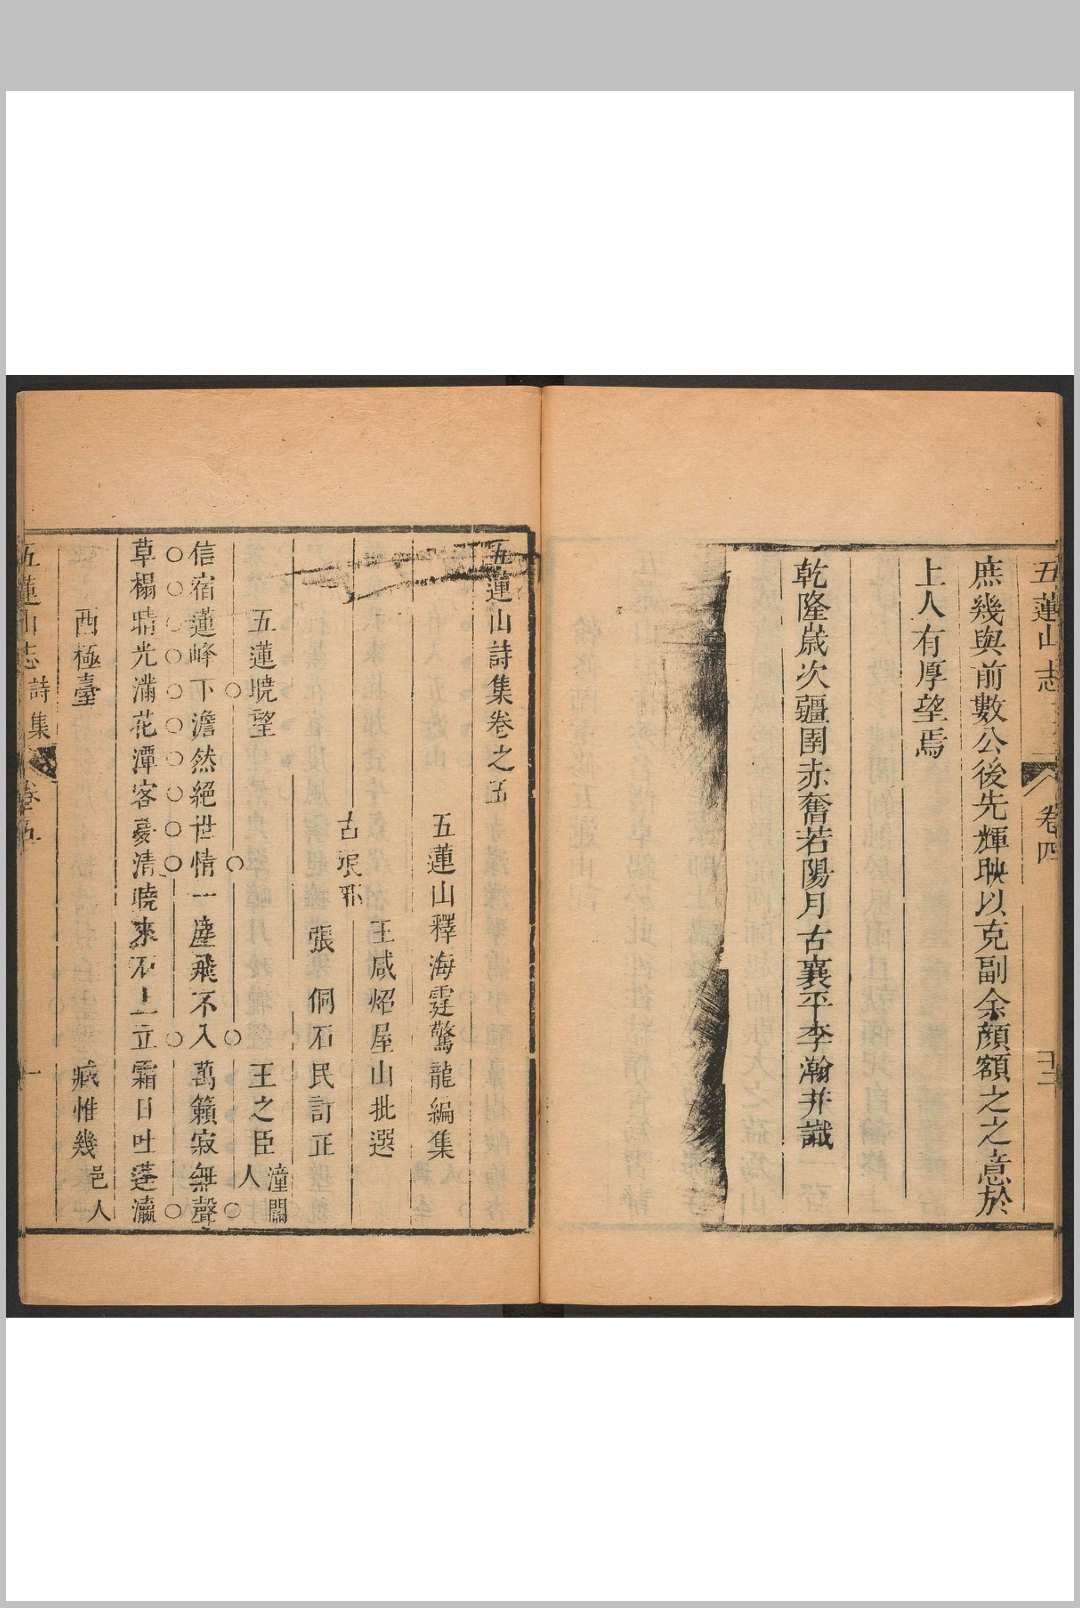 五蓮山志
卷四
庶幾與前數公後先輝映以克副余顏額之之意於
上人有厚望焉
乾隆歲次疆圉赤奮若陽月古襄平李瀚并識
五蓮山詩集卷之五
五蓮山釋海霆驚龍編集
王咸炤屋山批選
古琅邪
張侗石民訂正
五蓮曉望
王之臣
潼關
人
信宿蓮峰下澹然絕世情一塵飛不入萬籟寂無聲
草榻晴光滿花潭客夢清曉來不上立霜日吐蓬瀛
西極臺
臧惟幾
邑人
五蓮山志
詩集
卷五
一